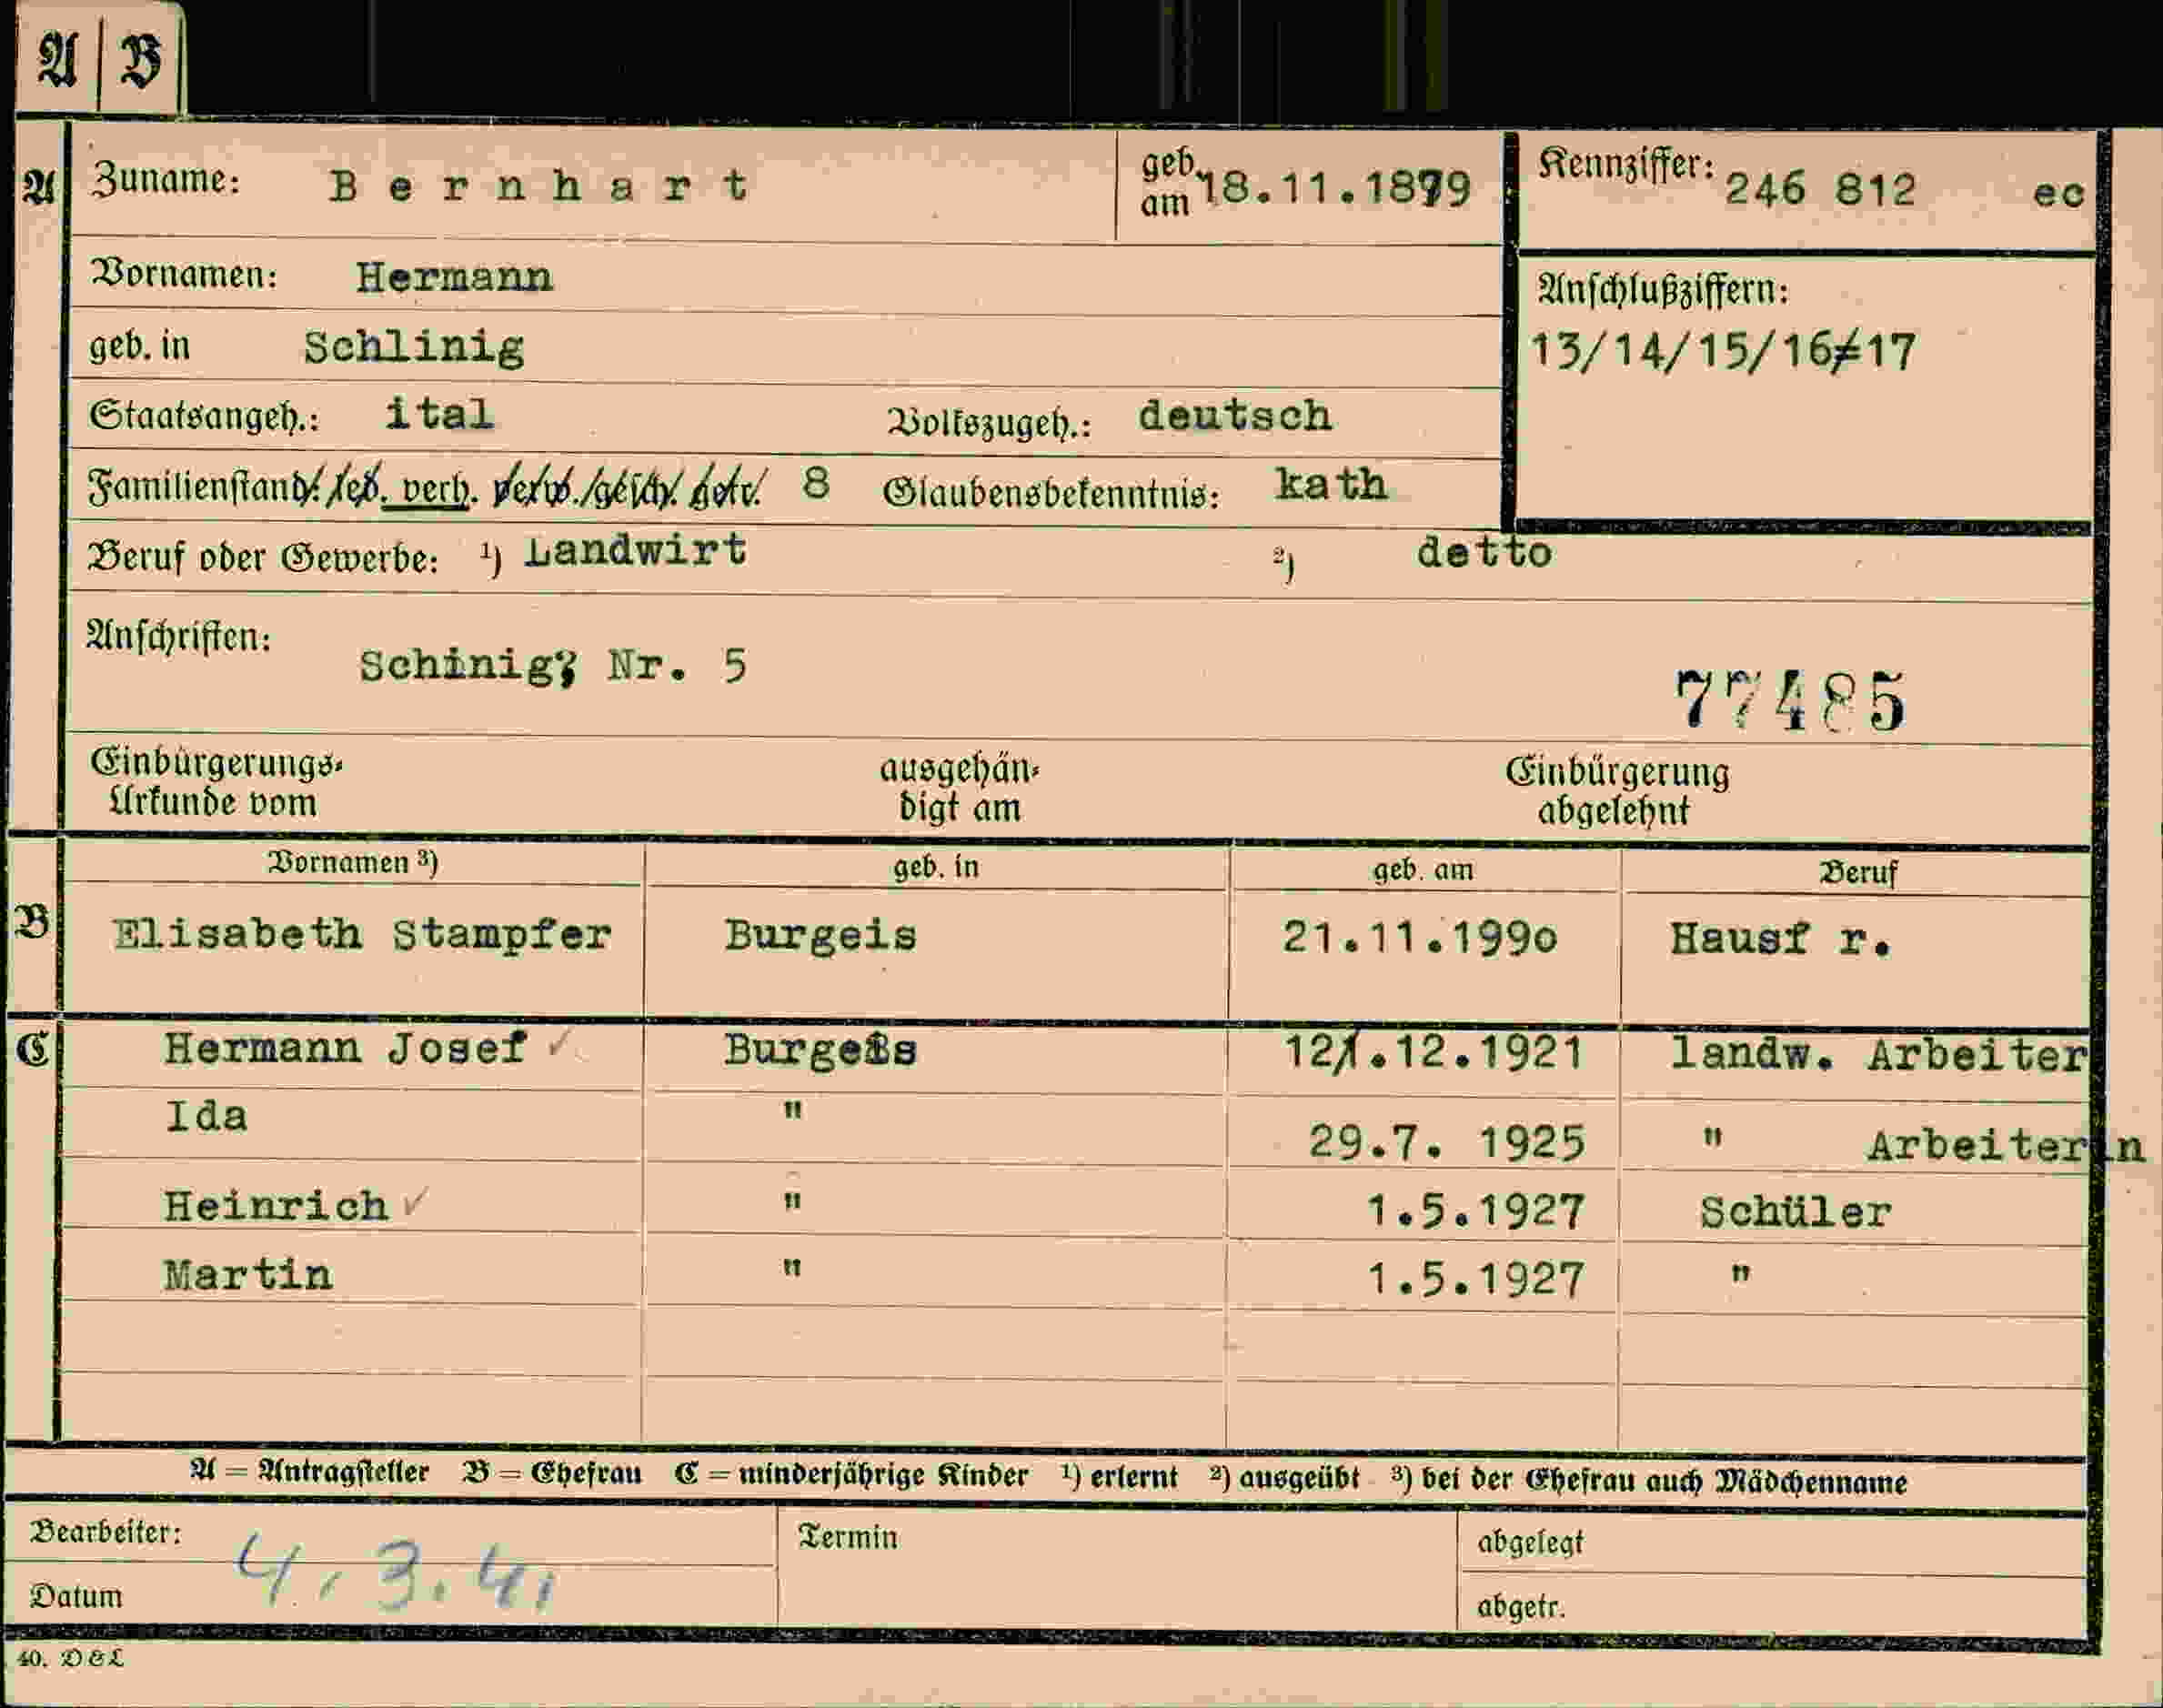 A B
A Zuname: Bernhart geb. am 18.11.1879 Kennziffer: 246 812 ec
Vornamen: Hermann
Anschlußziffern:
geb. in Schlinig
13/14/15/16≠17
Staatsangeh.: ital Volkszugeh.: deutsch
Familienstand: led. verh. verw. gesch. getr. 8 Glaubensbekenntnis: kath
Beruf oder Gewerbe: 1) Landwirt 2) detto
Anschriften:
Schinig; Nr. 5
77485
Einbürgerungs-
Urkunde vom
ausgehän-
digt am
Einbürgerung
abgelehnt
Vornamen 3) geb. in geb. am Beruf
B Elisabeth Stampfer Burgeis 21.11.199o Hausf r.
C Hermann Josef ✓ Burgeis 12.12.1921 landw. Arbeiter
Ida " 29.7. 1925 " Arbeiterin
Heinrich ✓ " 1.5.1927 Schüler
Martin " 1.5.1927 "
A = Antragsteller B = Ehefrau C = minderjährige Kinder 1) erlernt 2) ausgeübt 3) bei der Ehefrau auch Mädchenname
Bearbeiter:
Datum
4.3.41
Termin
abgelegt
abgetr.
40. D & L